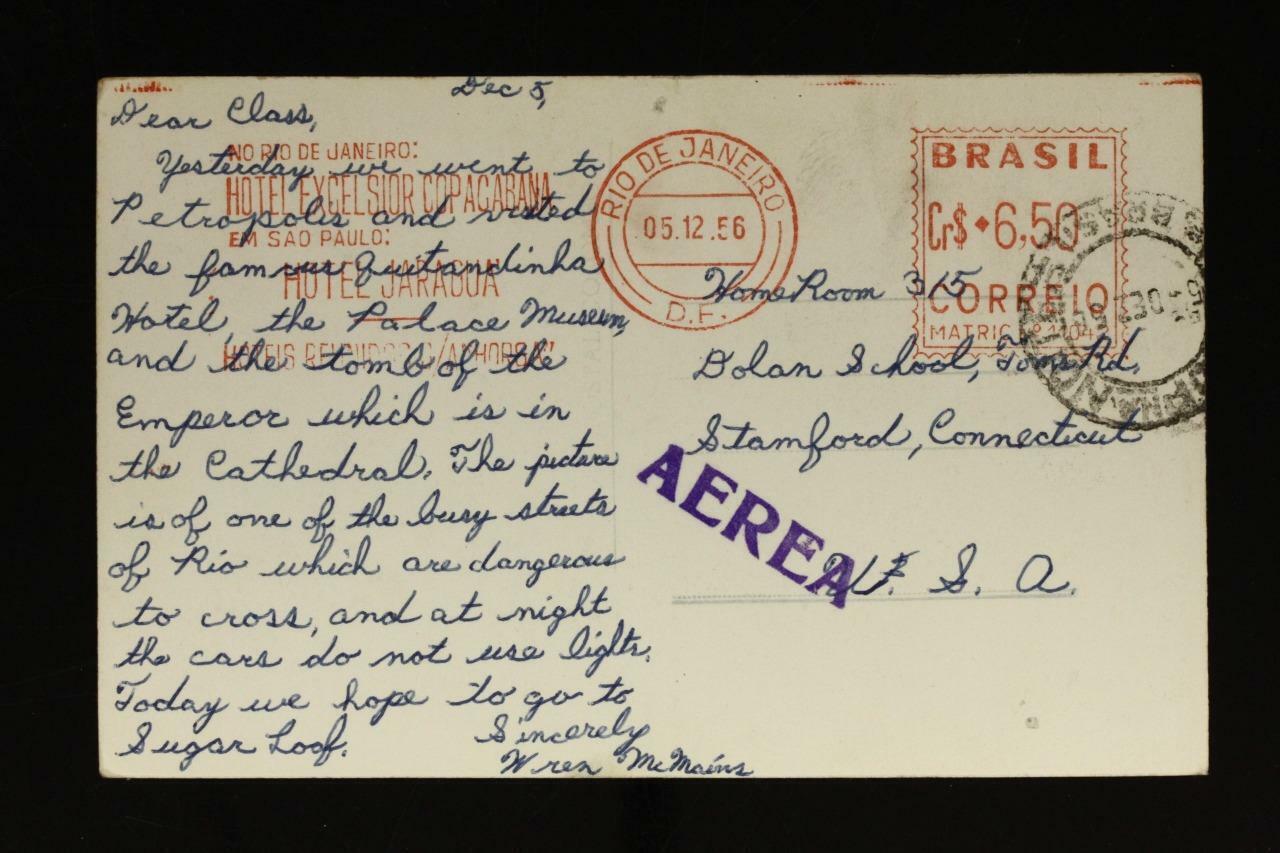 Dec 5,
Dear Class,
Yesterday we went to
Petropolis and visted
the famous Quitandinha
Hotel, the Palace Museum,
and the tomb of the
Emperor which is in
the Cathedral. The picture
is of one of the busy streets
of Rio which are dangerous
to cross, and at night
the cars do not use lights.
Today we hope to go to
Sugar Loof.
Sincerely
Wren McMains
NO RIO DE JANEIRO:
HOTEL EXCELSIOR COPACABANA
EM SAO PAULO:
HOTEL JARAGUA
HOTEIS
RIO DE JANEIRO
05.12.56
D.F.
BRASIL
Cr$ 6,50
CORREIO
MATRIC
Home Room 315
Dolan School, Toms Rd.
Stamford, Connecticut
U. S. A.
AEREA